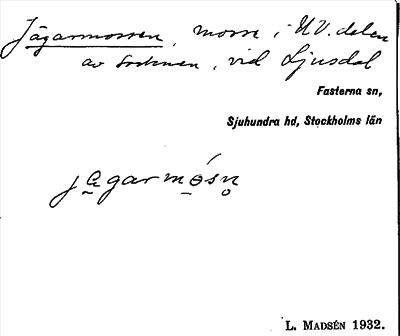 Jägarmossen, mosse i NV. delen
av socknen, vid Ljusdal
Fasterna sn,
Sjuhundra hd, Stockholms län
jägarmósn
L. MADSÉN 1932.